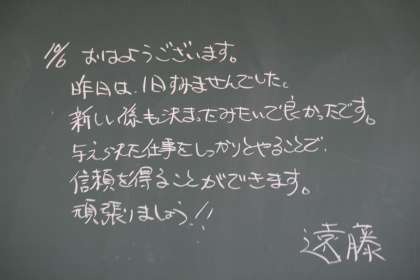 10/6 おはようございます。
昨日は、1日すみませんでした。
新しい係も決まったみたいで良かったです。
与えられた仕事をしっかりとやることで、
信頼を得ることができます。
頑張りましょう!!
遠藤